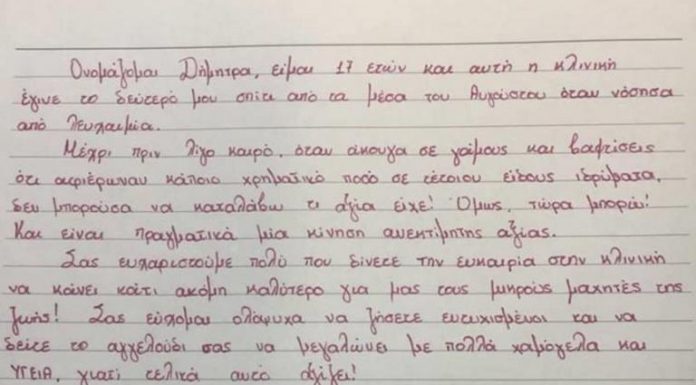 Ονομάζομαι Δήμητρα, είμαι 17 ετών και αυτή η κλινική
έγινε το δεύτερό μου σπίτι από τα μέσα του Αυγούστου όταν νόσησα
από λευχαιμία.
Μέχρι πριν λίγο καιρό, όταν άκουγα σε γάμους και βαφτίσεις
ότι αφιέρωναν κάποιο χρηματικό ποσό σε τέτοιου είδους ιδρύματα,
δεν μπορούσα να καταλάβω τι αξία είχε! Όμως, τώρα μπορώ!
Και είναι πραγματικά μία κίνηση ανεκτίμητης αξίας.
Σας ευχαριστούμε πολύ που δίνετε την ευκαιρία στην κλινική
να κάνει κάτι ακόμη καλύτερο για μας τους μικρούς μαχητές της
ζωής! Σας εύχομαι ολόψυχα να ζήσετε ευτυχισμένοι και να
δείτε το αγγελούδι σας να μεγαλώνει με πολλά χαμόγελα και
ΥΓΕΙΑ, γιατί τελικά αυτό αξίζει!